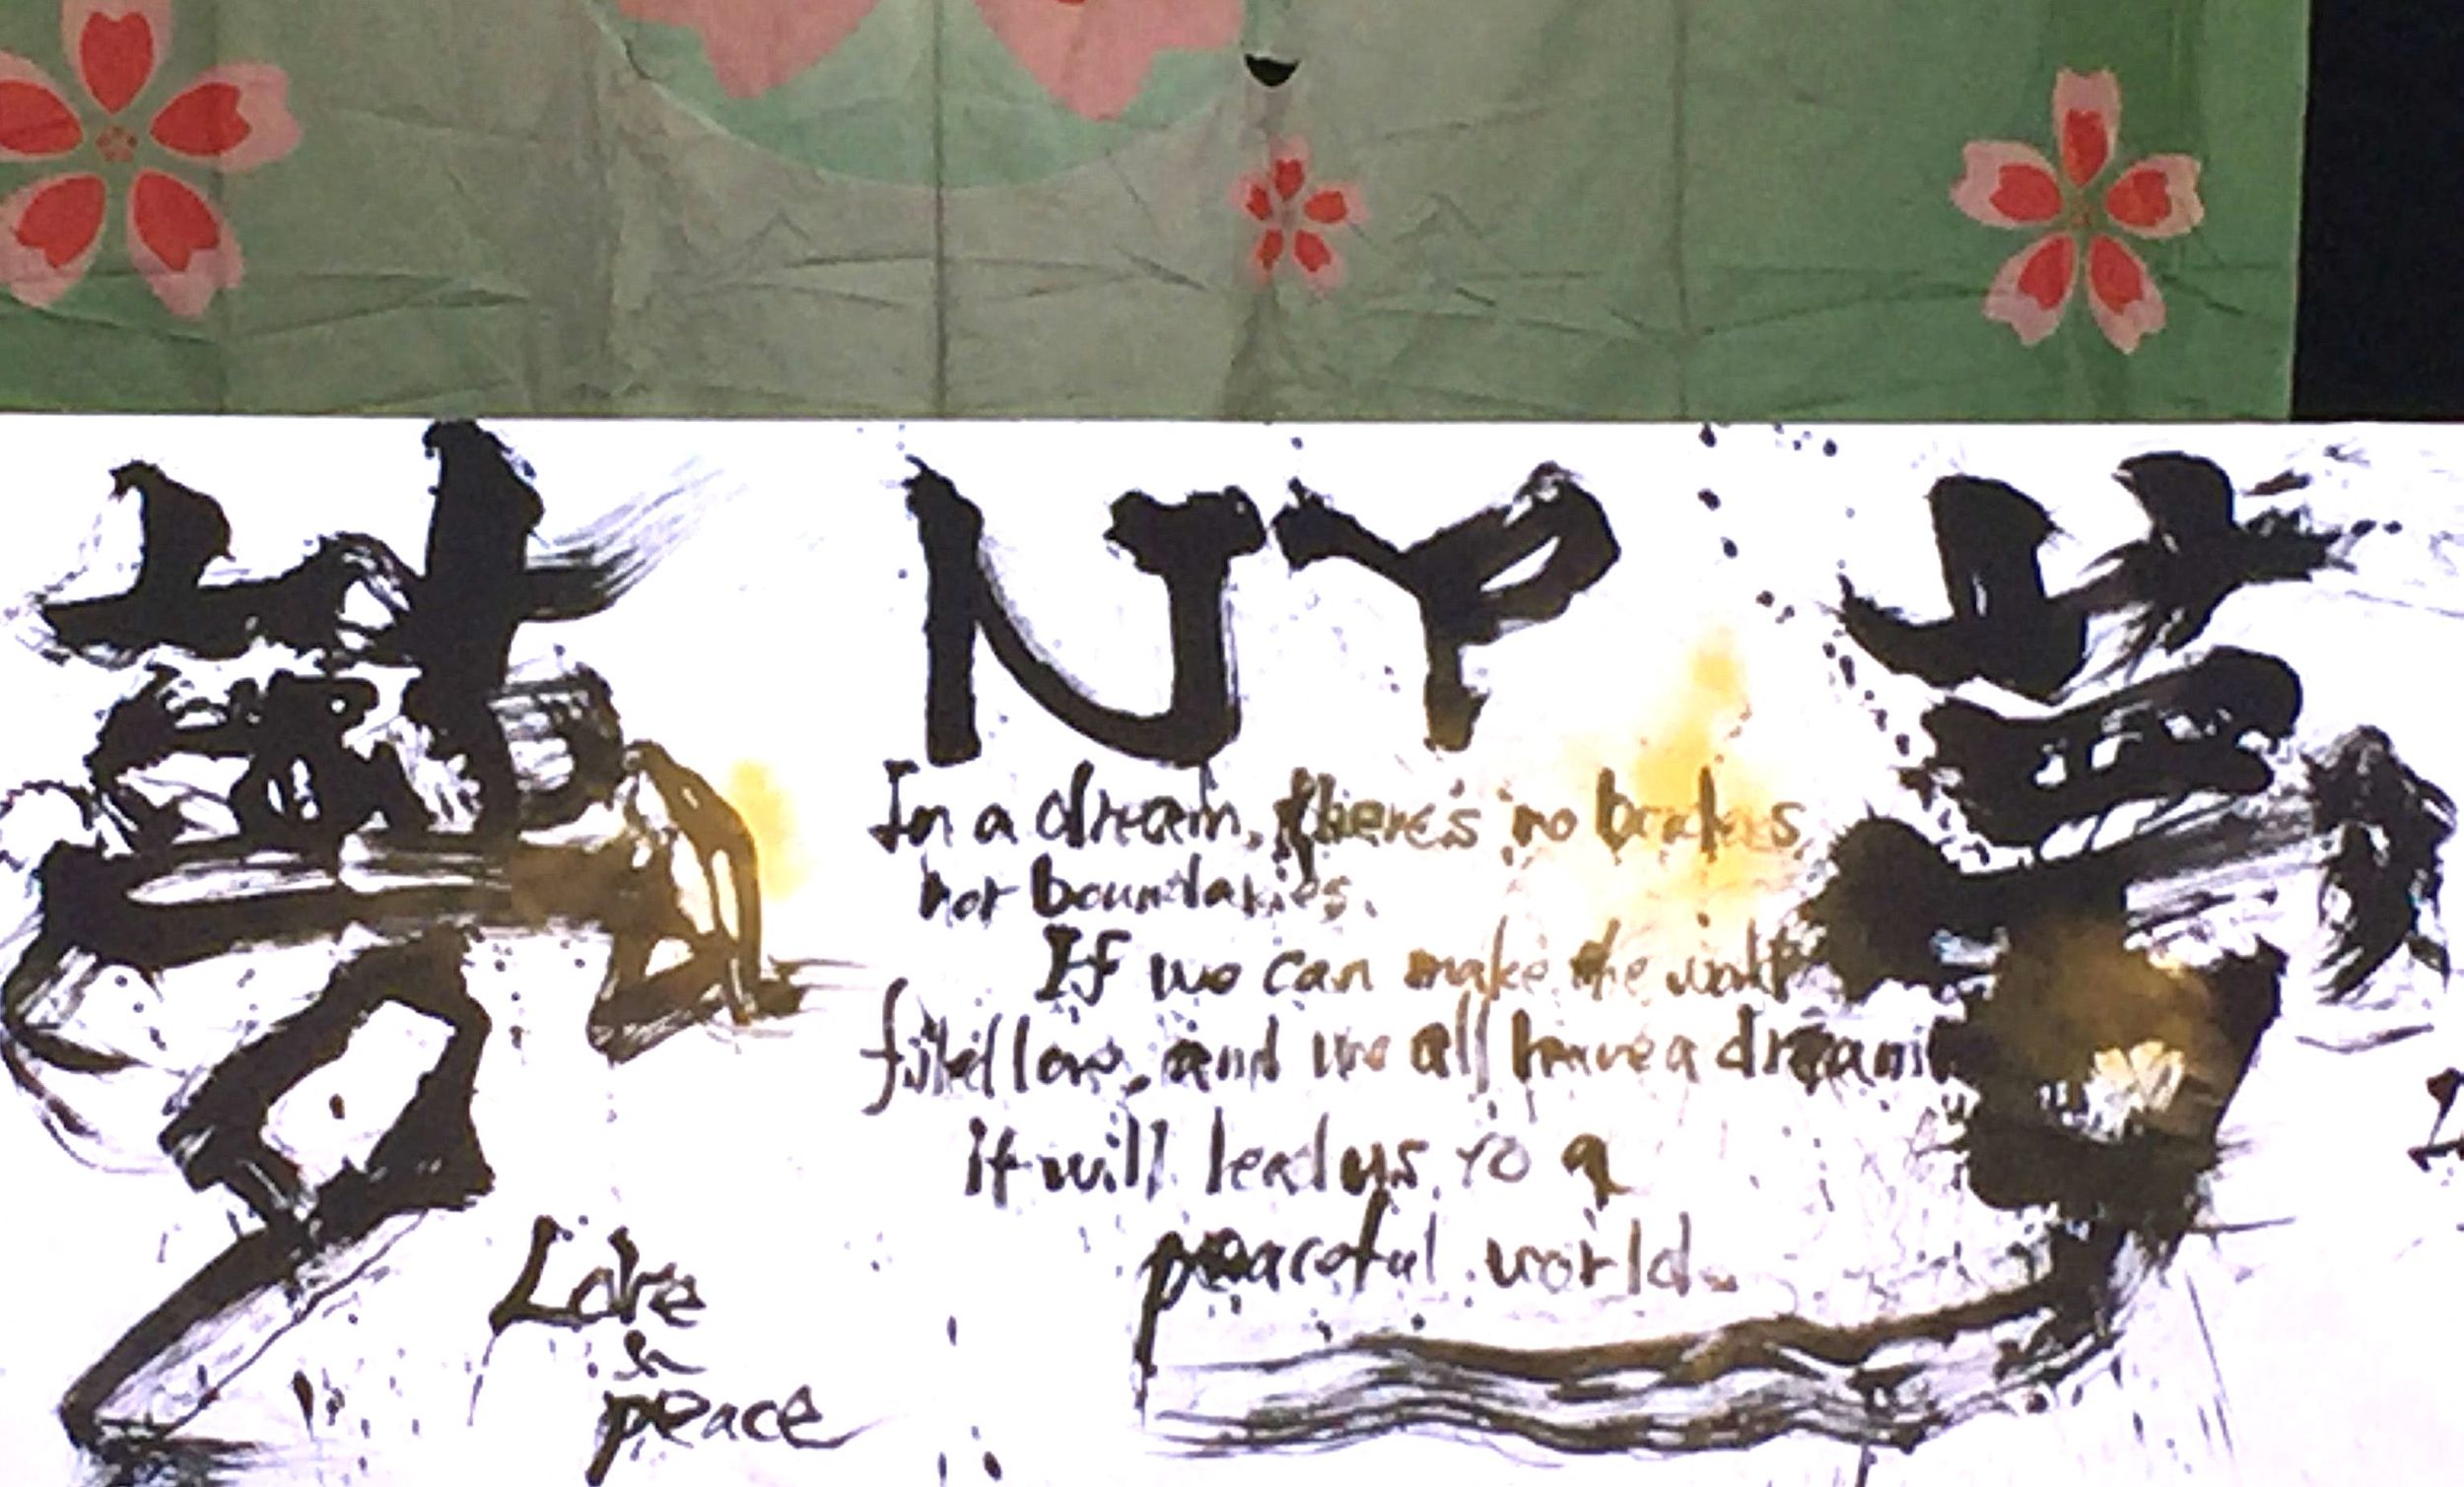 夢
NY
夢
In a dream, there's no borders
nor boundaries.
If we can make the world
filled love, and we all have a dream
it will lead us to a
peaceful world.
Love
&
peace